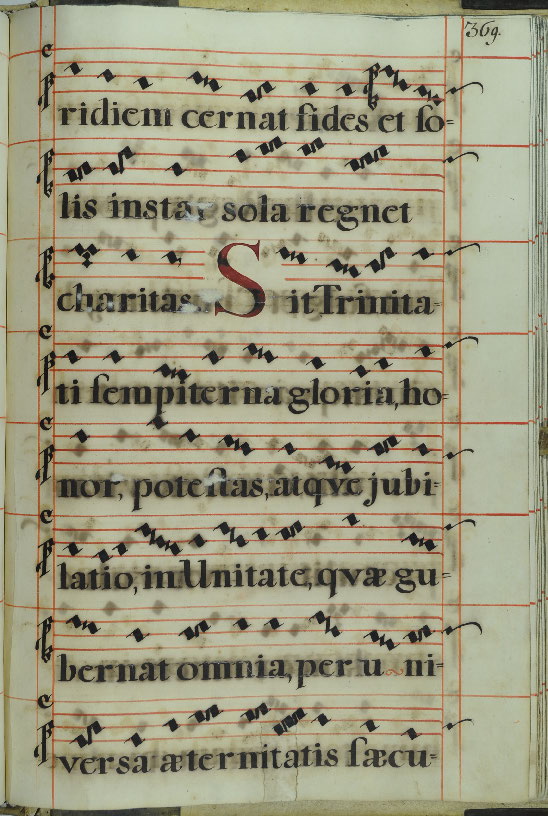 369.
ridiem cernat fides et so-
lis instar sola regnet
charitas. Sit Trinita-
ti sempiterna gloria, ho-
nor, potestas, atqve jubi-
latio, in Unitate, qvæ gu-
bernat omnia, per u~ni-
versa æternitatis sæcu-